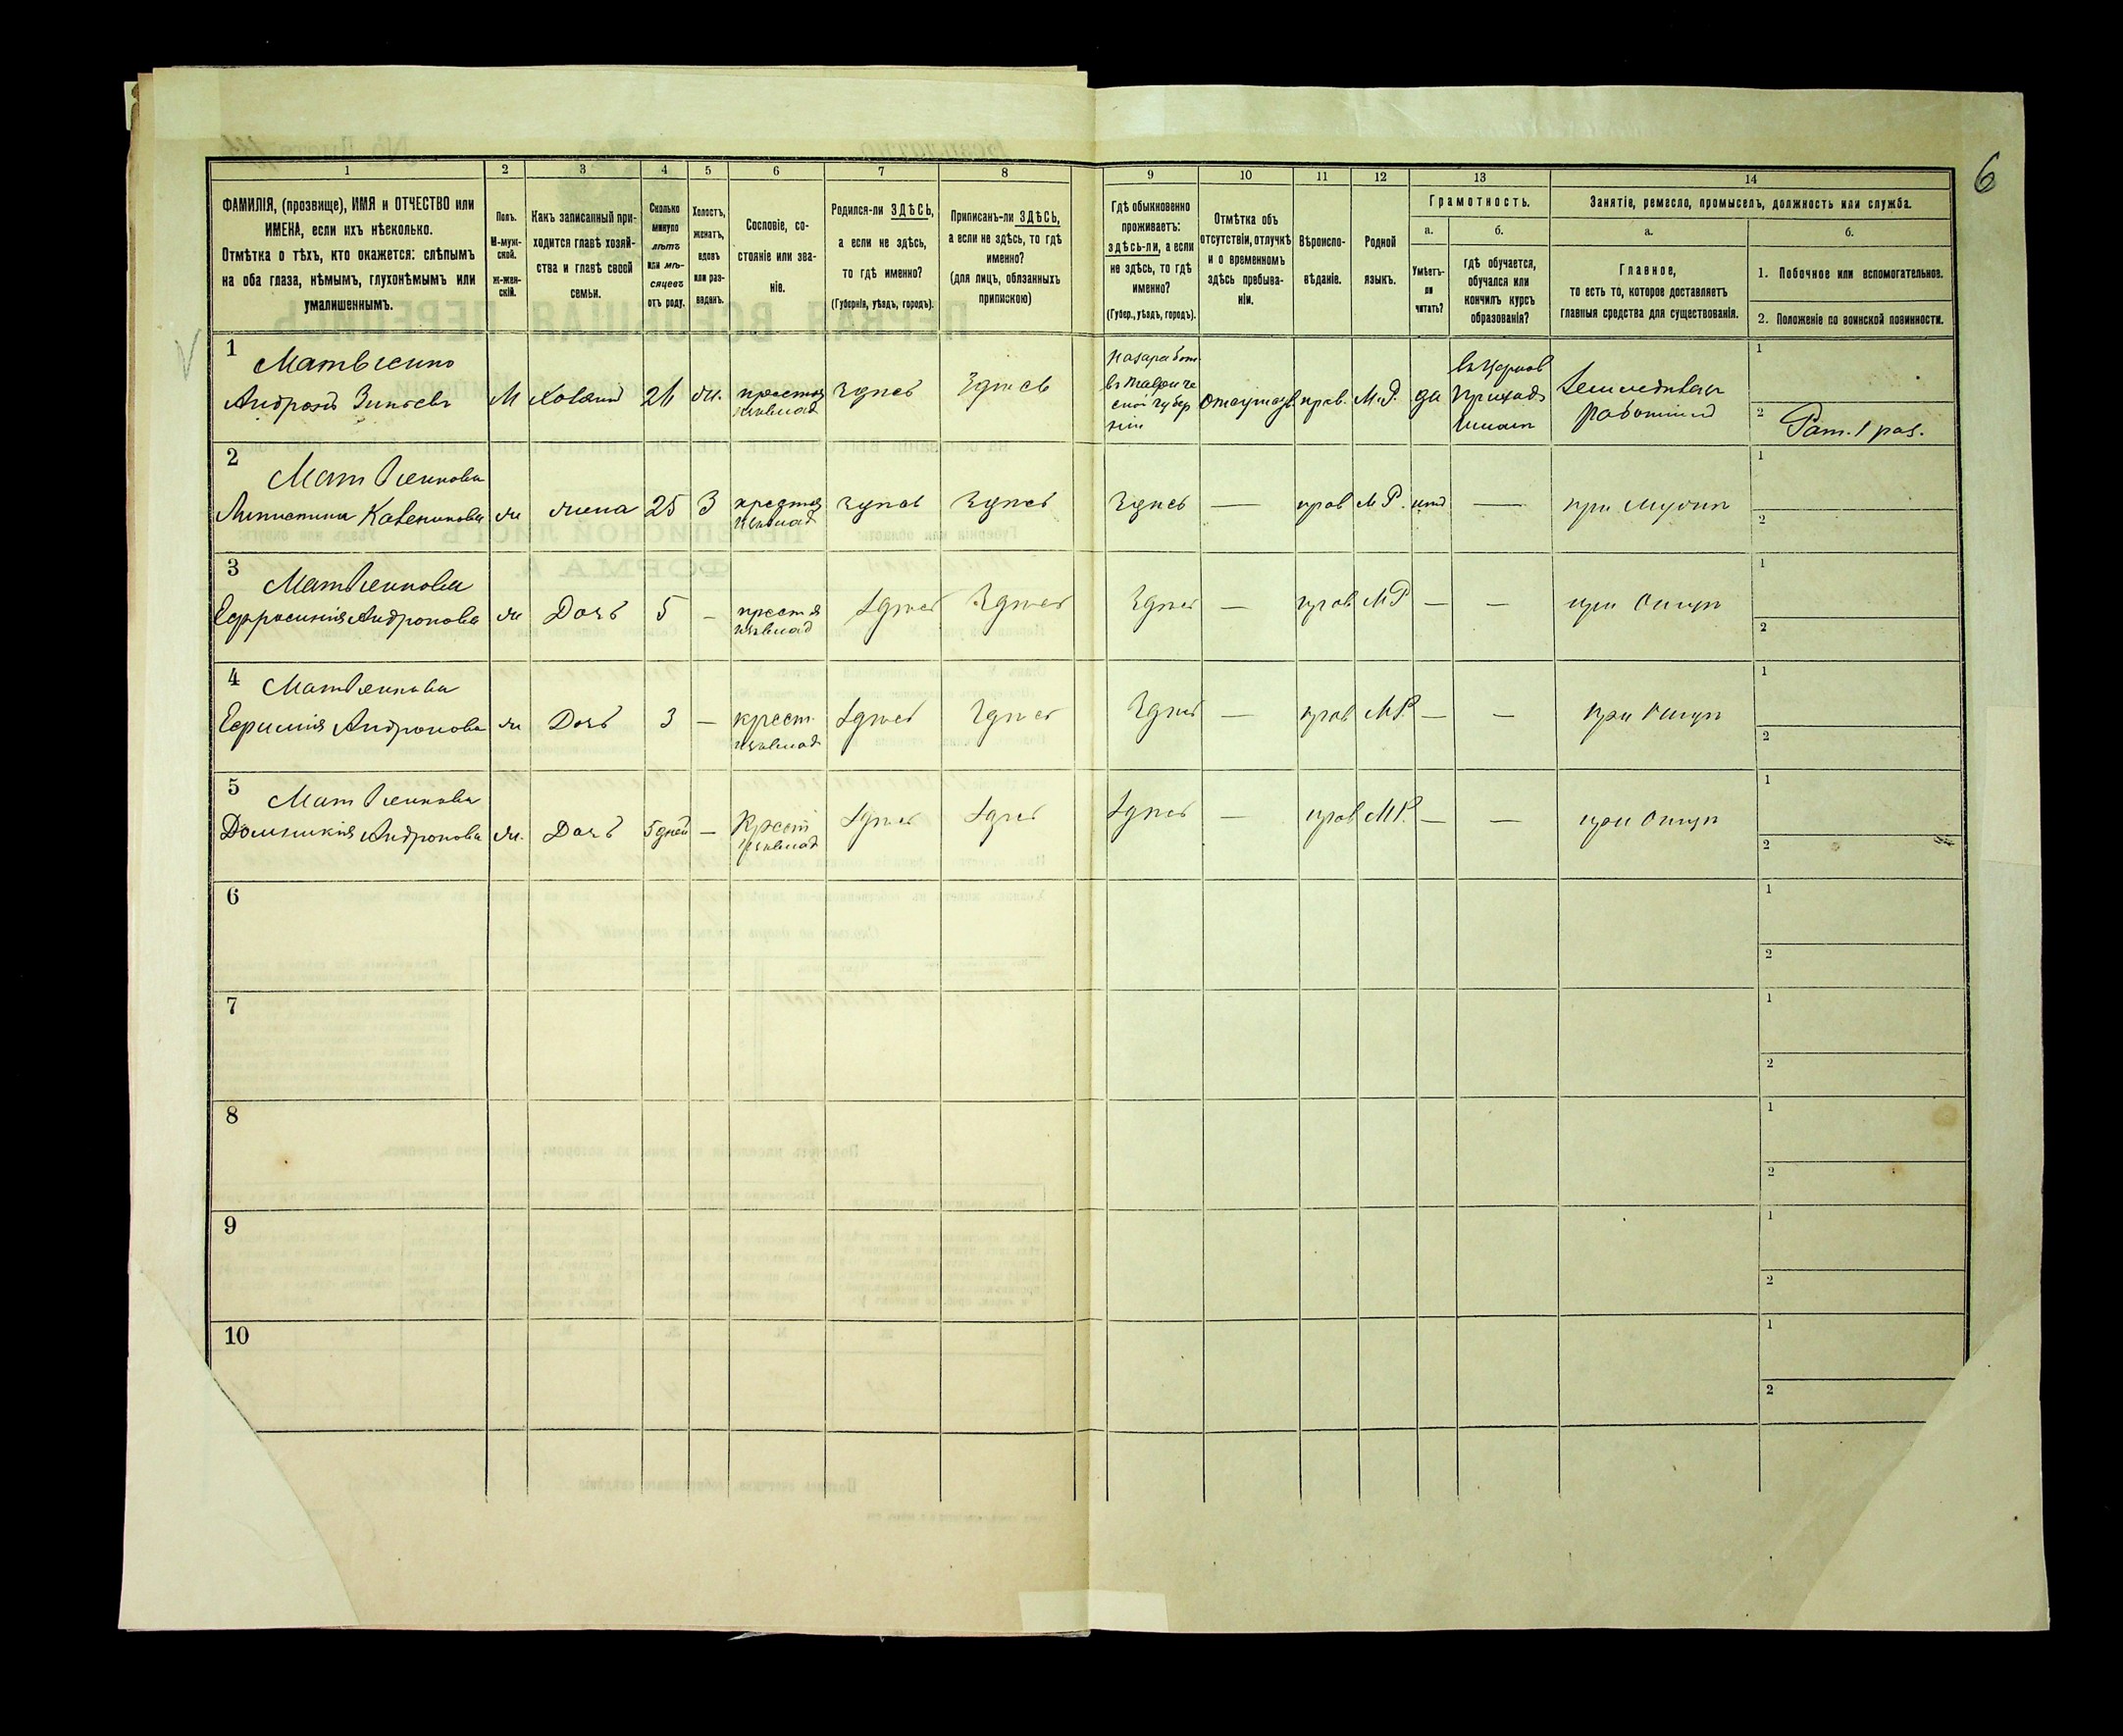 6
1 2 3 4 5 6 7 8 9 10 11 12 13 14
ФАМИЛІЯ, (прозвище), ИМЯ и ОТЧЕСТВО или
ИМЕНА, если ихъ нѣсколько.
Отмѣтка о тѣхъ, кто окажется: слѣпымъ
на оба глаза, нѣмымъ, глухонѣмымъ или
умалишеннымъ.
Полъ.
М-муж-
ской.
ж-жен-
скій.
Какъ записанный при-
ходится главѣ хозяй-
ства и главѣ своей
семьи.
Сколько
минуло
лѣтъ
или мѣ-
сяцевъ
отъ роду.
Холостъ,
женатъ,
вдовъ
или раз-
веденъ.
Сословіе, со-
стояніе или зва-
ніе.
Родился-ли ЗДѢСЬ,
а если не здѣсь,
то гдѣ именно?
(Губернія, уѣздъ, городъ).
Приписанъ-ли ЗДѢСЬ,
а если не здѣсь, то гдѣ
именно?
(для лицъ, обязанныхъ
припискою)
Гдѣ обыкновенно
проживаетъ:
здѣсь-ли, а если
не здѣсь, то гдѣ
именно?
(Губер., уѣздъ, городъ).
Отмѣтка объ
отсутствіи, отлучкѣ
и о временномъ
здѣсь пребыва-
ніи.
Вѣроиспо-
вѣданіе.
Родной
языкъ.
Грамотность.
а.
Умѣетъ-
ли
читать?
б.
гдѣ обучается,
обучался или
кончилъ курсъ
образованія?
Занятіе, ремесло, промыселъ, должность или служба.
а.
Главное,
то есть то, которое доставляетъ
главныя средства для существованія.
б.
1. Побочное или вспомогательное.
2. Положеніе по воинской повинности.
1
Матвіенко
Андронъ Зиновьевъ
М
Хозяинъ
ж.
Здѣсь
Здѣсь
на заработ
въ Тавриче
ской губер
ніи
прав.
М.Р.
да
въ Церков
Приход
школѣ
1
2 Рат. 1 раз.
2
Матвіенкова
ж
жена
25
З
Здѣсь
Здѣсь
Здѣсь
—
прав
М Р.
—
при мужѣ
1
2
3
Матвіенкова
Ефросинія Андронова
ж
Дочь
5
—
Здѣсь
Здѣсь
Здѣсь
—
прав
М Р
—
—
при отцѣ
1
2
4
Матвіенкова
Ефимія Андронова
ж
Дочь
3
—
крест.
Здѣсь
Здѣсь
Здѣсь
—
прав
М Р.
—
—
при отцѣ
1
2
5
Матвіенкова
Домникія Андронова
ж.
Дочь
5 дней
—
Крест
Здѣсь
Здѣсь
Здѣсь
—
прав
М Р.
—
—
при отцѣ
1
2
6
1
2
7
1
2
8
1
2
9
1
2
10
1
2